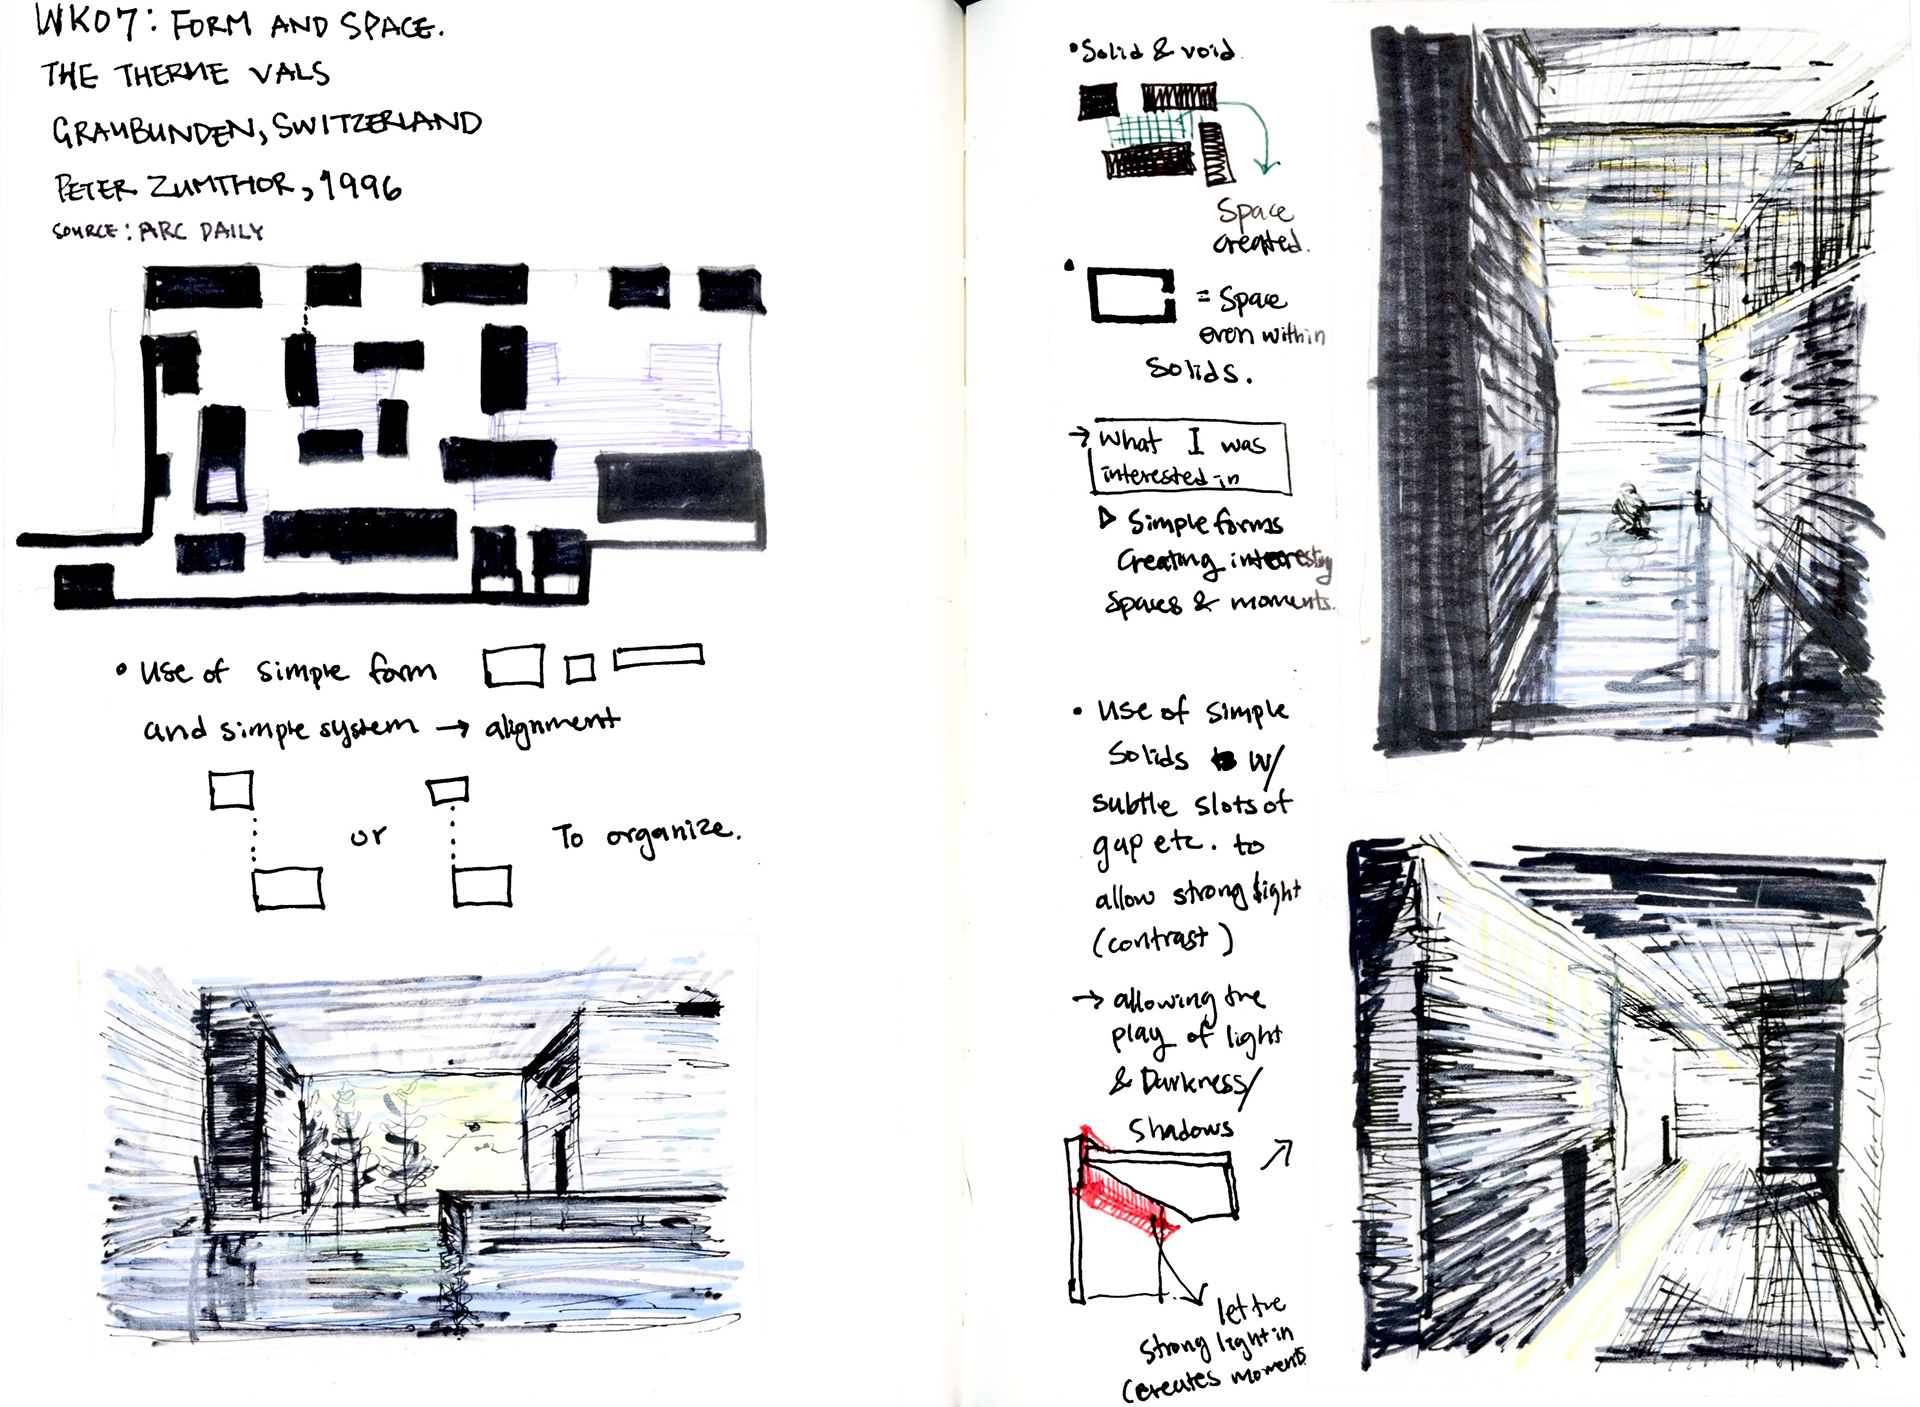 WK07: FORM AND SPACE.
THE THERME VALS
GRAUBUNDEN, SWITZERLAND
PETER ZUMTHOR, 1996
SOURCE: ARC DAILY
• Use of simple form
and simple system → alignment
or
To organize.
• Solid & void.
Space
created.
= Space
even within
Solids.
→ What I was
interested in
▷ Simple forms
Creating interesting
Spaces & moments.
• Use of simple
Solids w/
subtle slots of
gap etc. to
allow strong light
(contrast)
→ allowing the
play of light
& Darkness/
Shadows
let the
strong light in
(creates moments